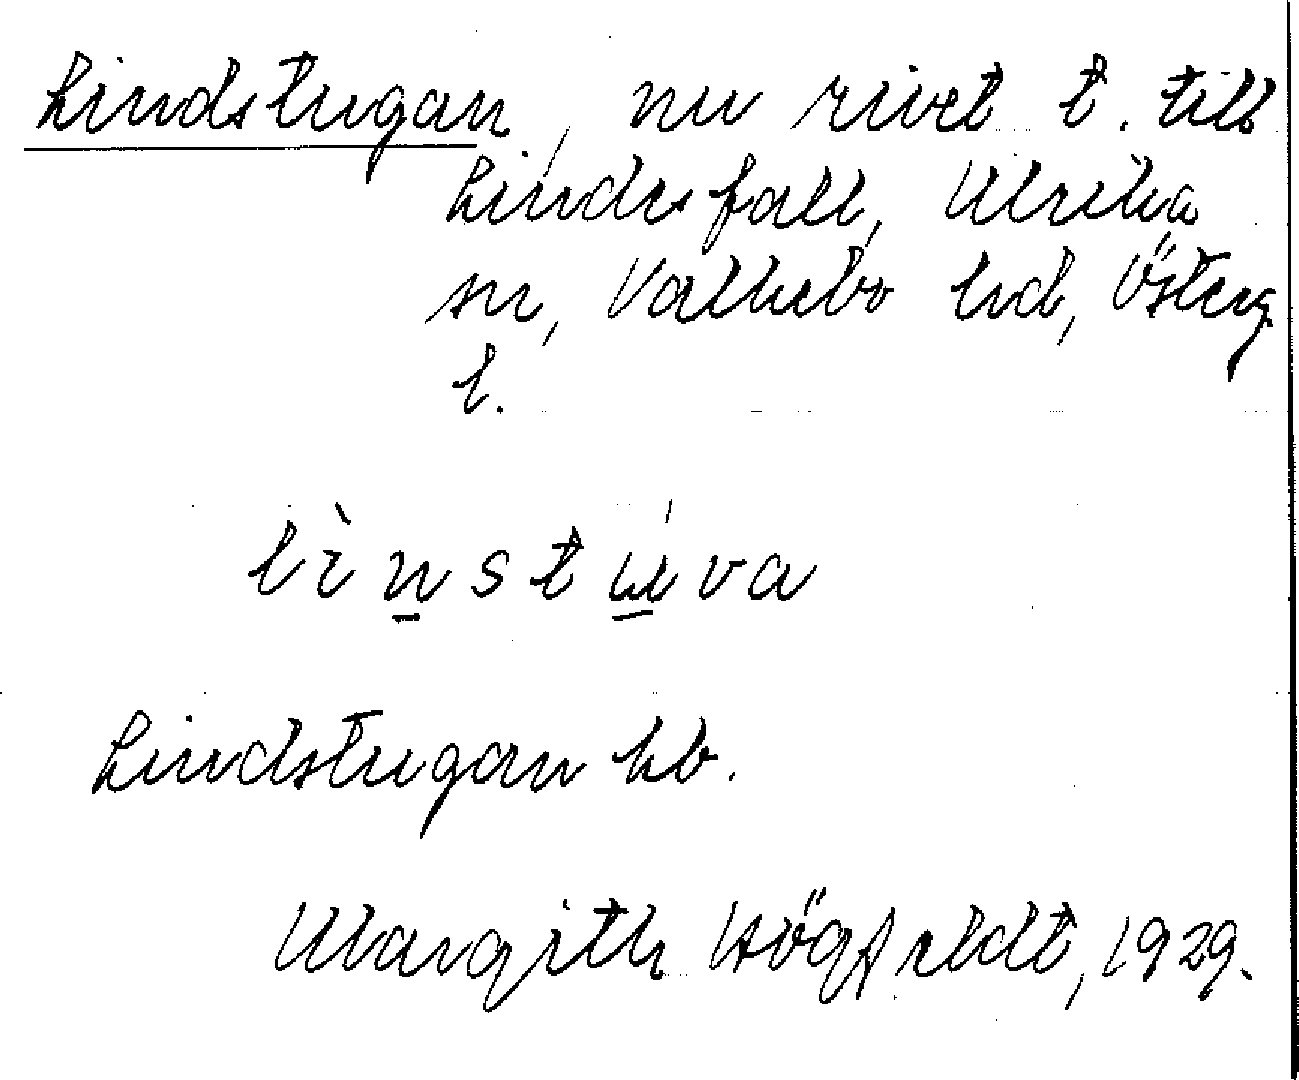 Lindstugan, nu rivet t. till
Lindesfall, Ulrika
sn, Valkebo hd, Österg.
l.
lìnstúva
Lindstugan kb.
Margith Högfeldt, 1929.